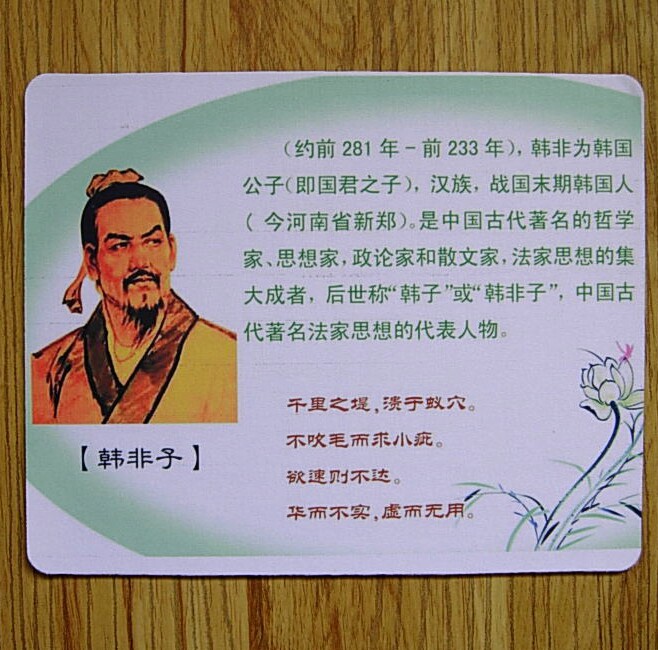 （约前 281 年－前 233 年），韩非为韩国
公子（即国君之子），汉族，战国末期韩国人
（ 今河南省新郑）。是中国古代著名的哲学
家、思想家，政论家和散文家，法家思想的集
大成者，后世称“韩子”或“韩非子”，中国古
代著名法家思想的代表人物。
千里之堤，溃于蚁穴。
不吹毛而求小疵。
欲速则不达。
华而不实，虚而无用。
【韩非子】